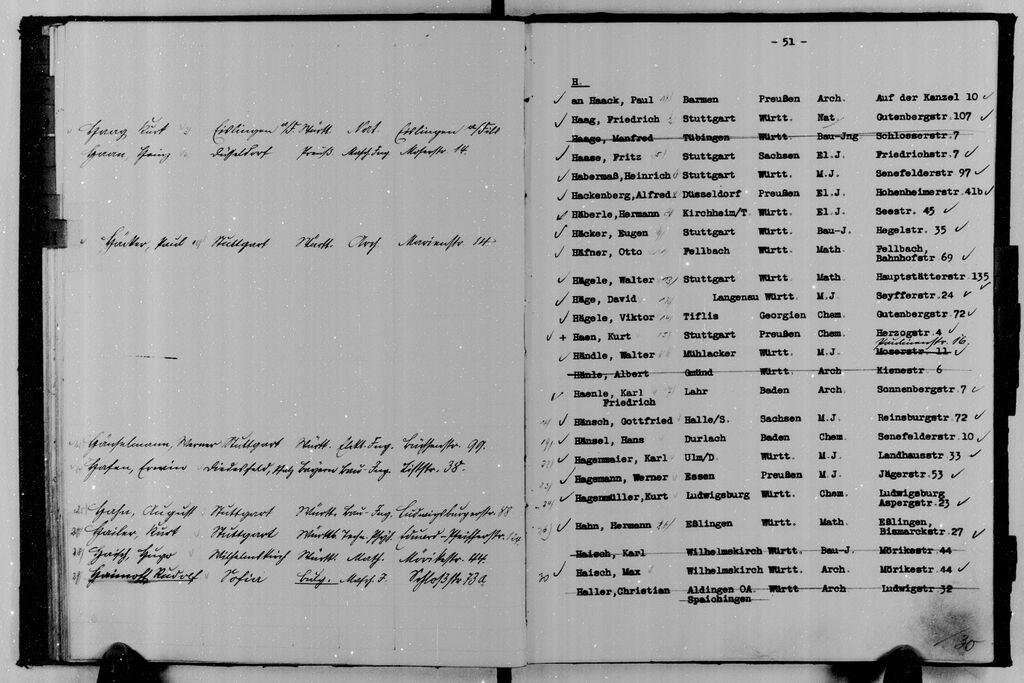 Haag Kurt Eßlingen a/F. Württ. Nat. Eßlingen
Haan, Heinz Düsseldorf Preuß. Masch. Ing. Moserstr. 14.
Häcker, Paul Stuttgart Württ. Arch. Marienstr. 14
Hänselmann, Werner Stuttgart Württ. Elekt. Ing. Büchsenstr. 99.
Hafen, Erwin Diedesfeld, Pfalz Bayern Bau-Ing. Liststr. 38.
Hahn, August Stuttgart Württ. Bau-Ing. Ludwigsburgerstr. 88
Hailer, Kurt Stuttgart Württ.
Haisch, Hugo Wilhelmskirch Württ. Math. Mörikestr. 44.
Rudolf Sofia Bulg. Masch. J. Schloßstr. 13a
- 51 -
H.
an Haack, Paul Barmen Preußen Arch. Auf der Kanzel 10
Haag, Friedrich Stuttgart Württ. Nat. Gutenbergstr. 107
Haage, Manfred Tübingen Württ. Bau-Jng Schlosserstr. 7
Haase, Fritz Stuttgart Sachsen El.J. Friedrichstr. 7
Habermaß,Heinrich Stuttgart Württ. M.J. Senefelderstr 97
Hackenberg,Alfred Düsseldorf Preußen El.J. Hohenheimerstr. 41b
Häberle,Hermann Kirchheim/T. Württ. El.J. Seestr. 45
Häcker, Eugen Stuttgart Württ. Bau-J. Hegelstr. 35
Häfner, Otto Fellbach Württ. Math. Fellbach,
Bahnhofstr 69
Hägele, Walter Stuttgart Württ. Math. Hauptstätterstr 135
Häge, David Langenau Württ. M.J. Seyfferstr. 24
Hägele, Viktor Tiflis Georgien Chem. Gutenbergstr. 72
+ Haen, Kurt Stuttgart Preußen Chem. Herzogstr. 4
Händle, Walter Mühlacker Württ. M.J. Moserstr. 11
Hänle, Albert Gmünd Württ. Arch Kienestr. 6
Haenle, Karl Lahr Baden Arch. Sonnenbergstr. 7
Friedrich
Hänsch, Gottfried Halle/S. Sachsen M.J. Reinsburgstr. 72
Hänsel, Hans Durlach Baden Chem. Senefelderstr. 10
Hagenmaier, Karl Ulm/D. Württ. M.J. Landhausstr. 33
Hagemann, Werner Essen Preußen M.J. Jägerstr. 53
Hagenmüller,Kurt Ludwigsburg Württ. Chem. Ludwigsburg
Aspergstr. 23
Hahn, Hermann Eßlingen Württ. Math Eßlingen,
Bismarckstr. 27
Haisch, Karl Wilhelmskirch Württ. Bau-J. Mörikestr 44
30 Haisch, Max Wilhelmskirch Württ. Arch. Mörikestr. 44
Haller,Christian Aldingen OA. Württ Arch Ludwigstr 32
Spaichingen
30